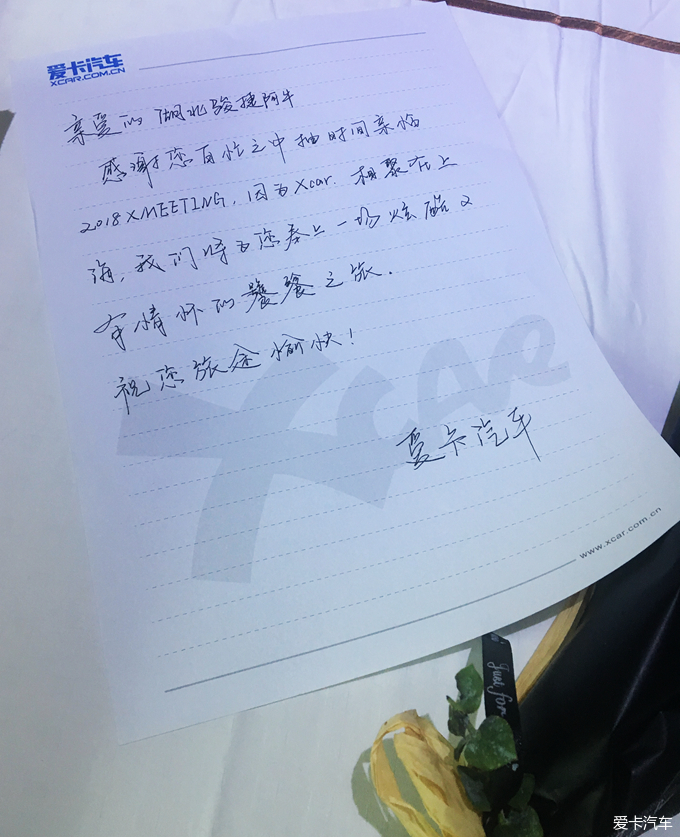 爱卡汽车
XCAR.COM.CN
亲爱的湖北骏捷阿牛
感谢您百忙之中抽时间亲临
2018XMEETING,因为Xcar.相聚在上
海,我们将为您奉上一场炫酷又
有情怀的饕餮之旅.
祝您旅途愉快!
Xcar
爱卡汽车
www.xcar.com.cn
Just for
爱卡汽车